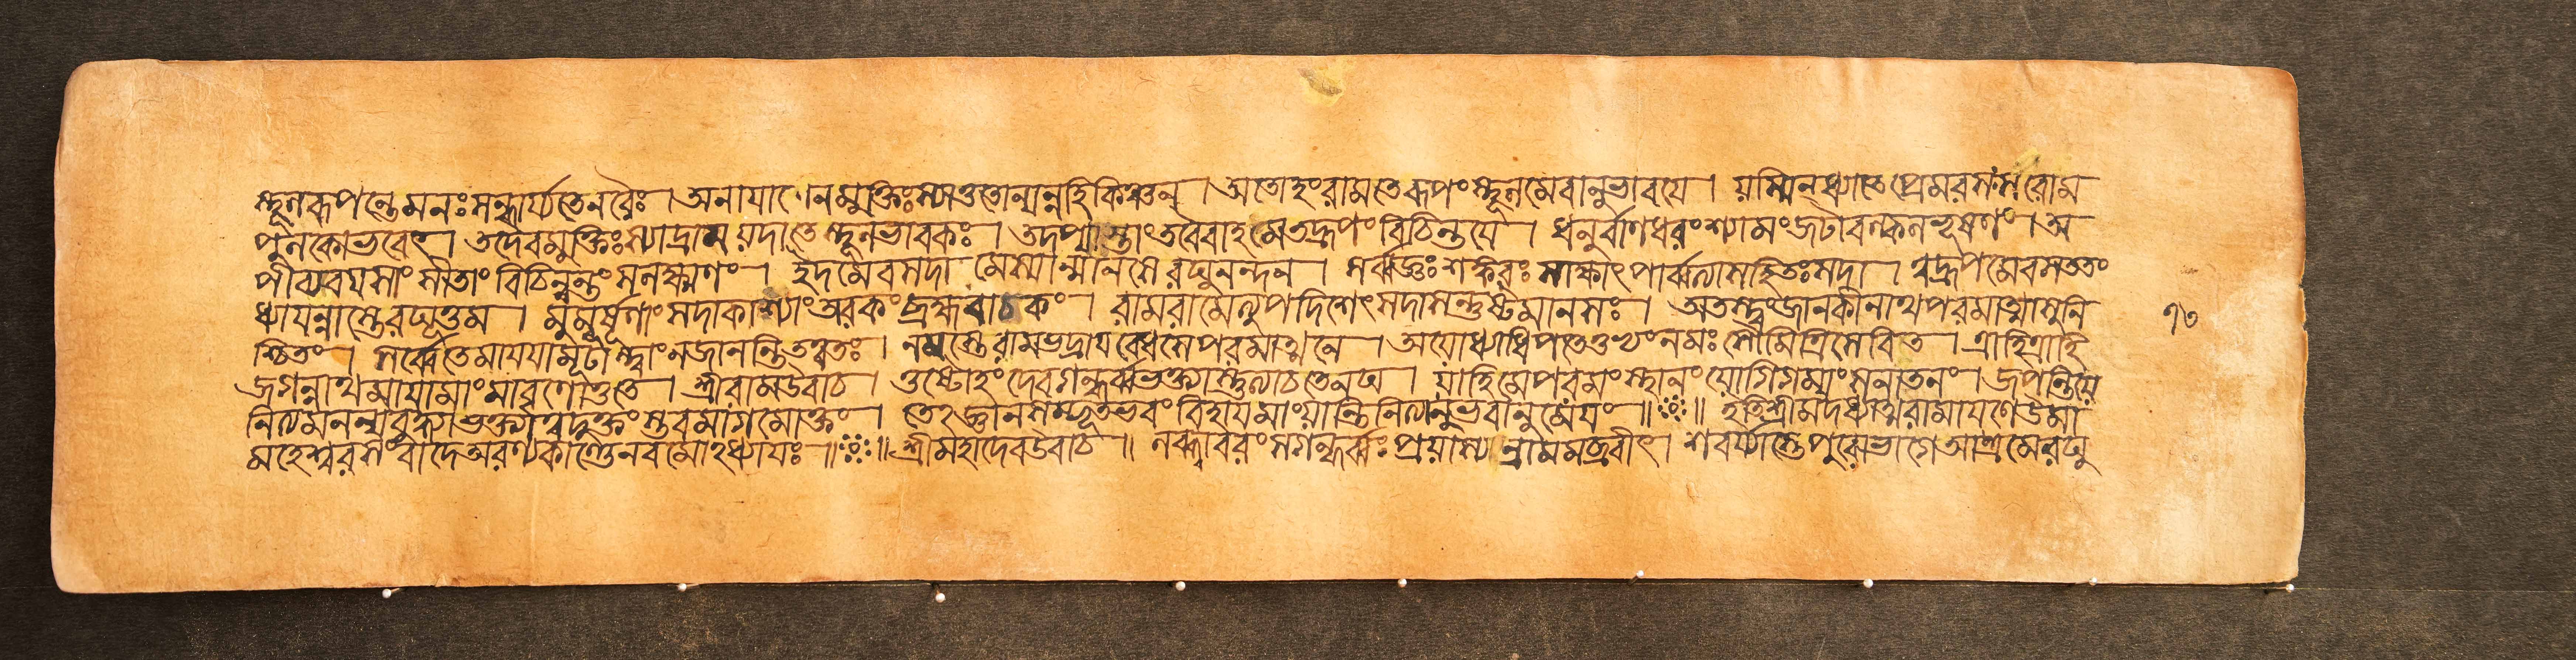 স্থূলরূপন্তেমনঃসন্ধার্য্যতেনরৈঃ । অনাযাশেনমুক্তিঃস্যান্নতোন্যন্নহিকিঞ্চন । অতোহংরামতেরূপংস্থূলমেবানুভাবয়ে । যস্মিন্ধ্যাতেপ্রেমরসঃসরোম
পুলকোভবেৎ । তদৈবমুক্তিঃস্যাদ্রাম যদাতেস্থূলভাবকঃ । তদপ্যাস্তাংতবৈবাহমেতদ্রূপংবিচিন্তয়ে । ধনুর্বাণধরংশ্যামংজটাবল্কলভূষণং । অ
পীব্যবয়সাংসীতাংবিচিন্বন্তংসলক্ষ্মণং । ইদমেবসদা মেস্যান্মানসেরঘুনন্দন । সর্ব্বজ্ঞঃশঙ্করঃসাক্ষাৎপার্ব্বত্যাসহিতঃসদা । ত্বদ্রূপমেবসততং
ধ্যায়ন্নাস্তেরঘূত্তম । মুমূর্ষূণাংসদাকাশ্যাংতারকংব্রহ্মবাচকং । রামরামেত্যুপদিশেৎসদাসন্তুষ্টমানসঃ । অতস্ত্বংজানকীনাথপরমাত্মাসুনি ১৩
শ্চিতঃ । সর্ব্বেতেমাযয়ামূঢাস্ত্বাংনজানন্তিতত্বতঃ । নমস্তেরামভদ্রায়বেধসেপরমাত্মনে । অযোধ্যাধিপতেতুভ্যংনমঃসৌমিত্রিসেবিত । ত্রাহিত্রাহি
জগন্নাথমাযামাংনাবৃণোতুতে । শ্রীরামউবাচ । তুষ্টোহংদেবগন্ধর্ব্বভক্ত্যাস্তুত্যাচতেনঘ । যাহিমেপরমংস্থানংযোগিগম্যংসনাতনং । জপন্তিযে
নিত্যমনন্যবুদ্ধ্যাভক্ত্যাত্বদুক্তংস্তবমাগমোক্তং । তেঽজ্ঞানসম্ভূতভবংবিহায়মাংযান্তিনিত্যানুভবানুমেয়ং ॥ ॥ ইতিশ্রীমদধ্যাত্মরামাযণেউমা
মহেশ্বরসংবাদেঅরণ্যকাণ্ডেনবমোঽধ্যায়ঃ ॥ ॥ শ্রীমহাদেবউবাচ ॥ লব্ধ্বাবরংসগন্ধর্ব্বঃপ্রয়াস্যন্রামমব্রবীৎ । শবর্য্যাস্তেপুরোভাগেআশ্রমেরঘু